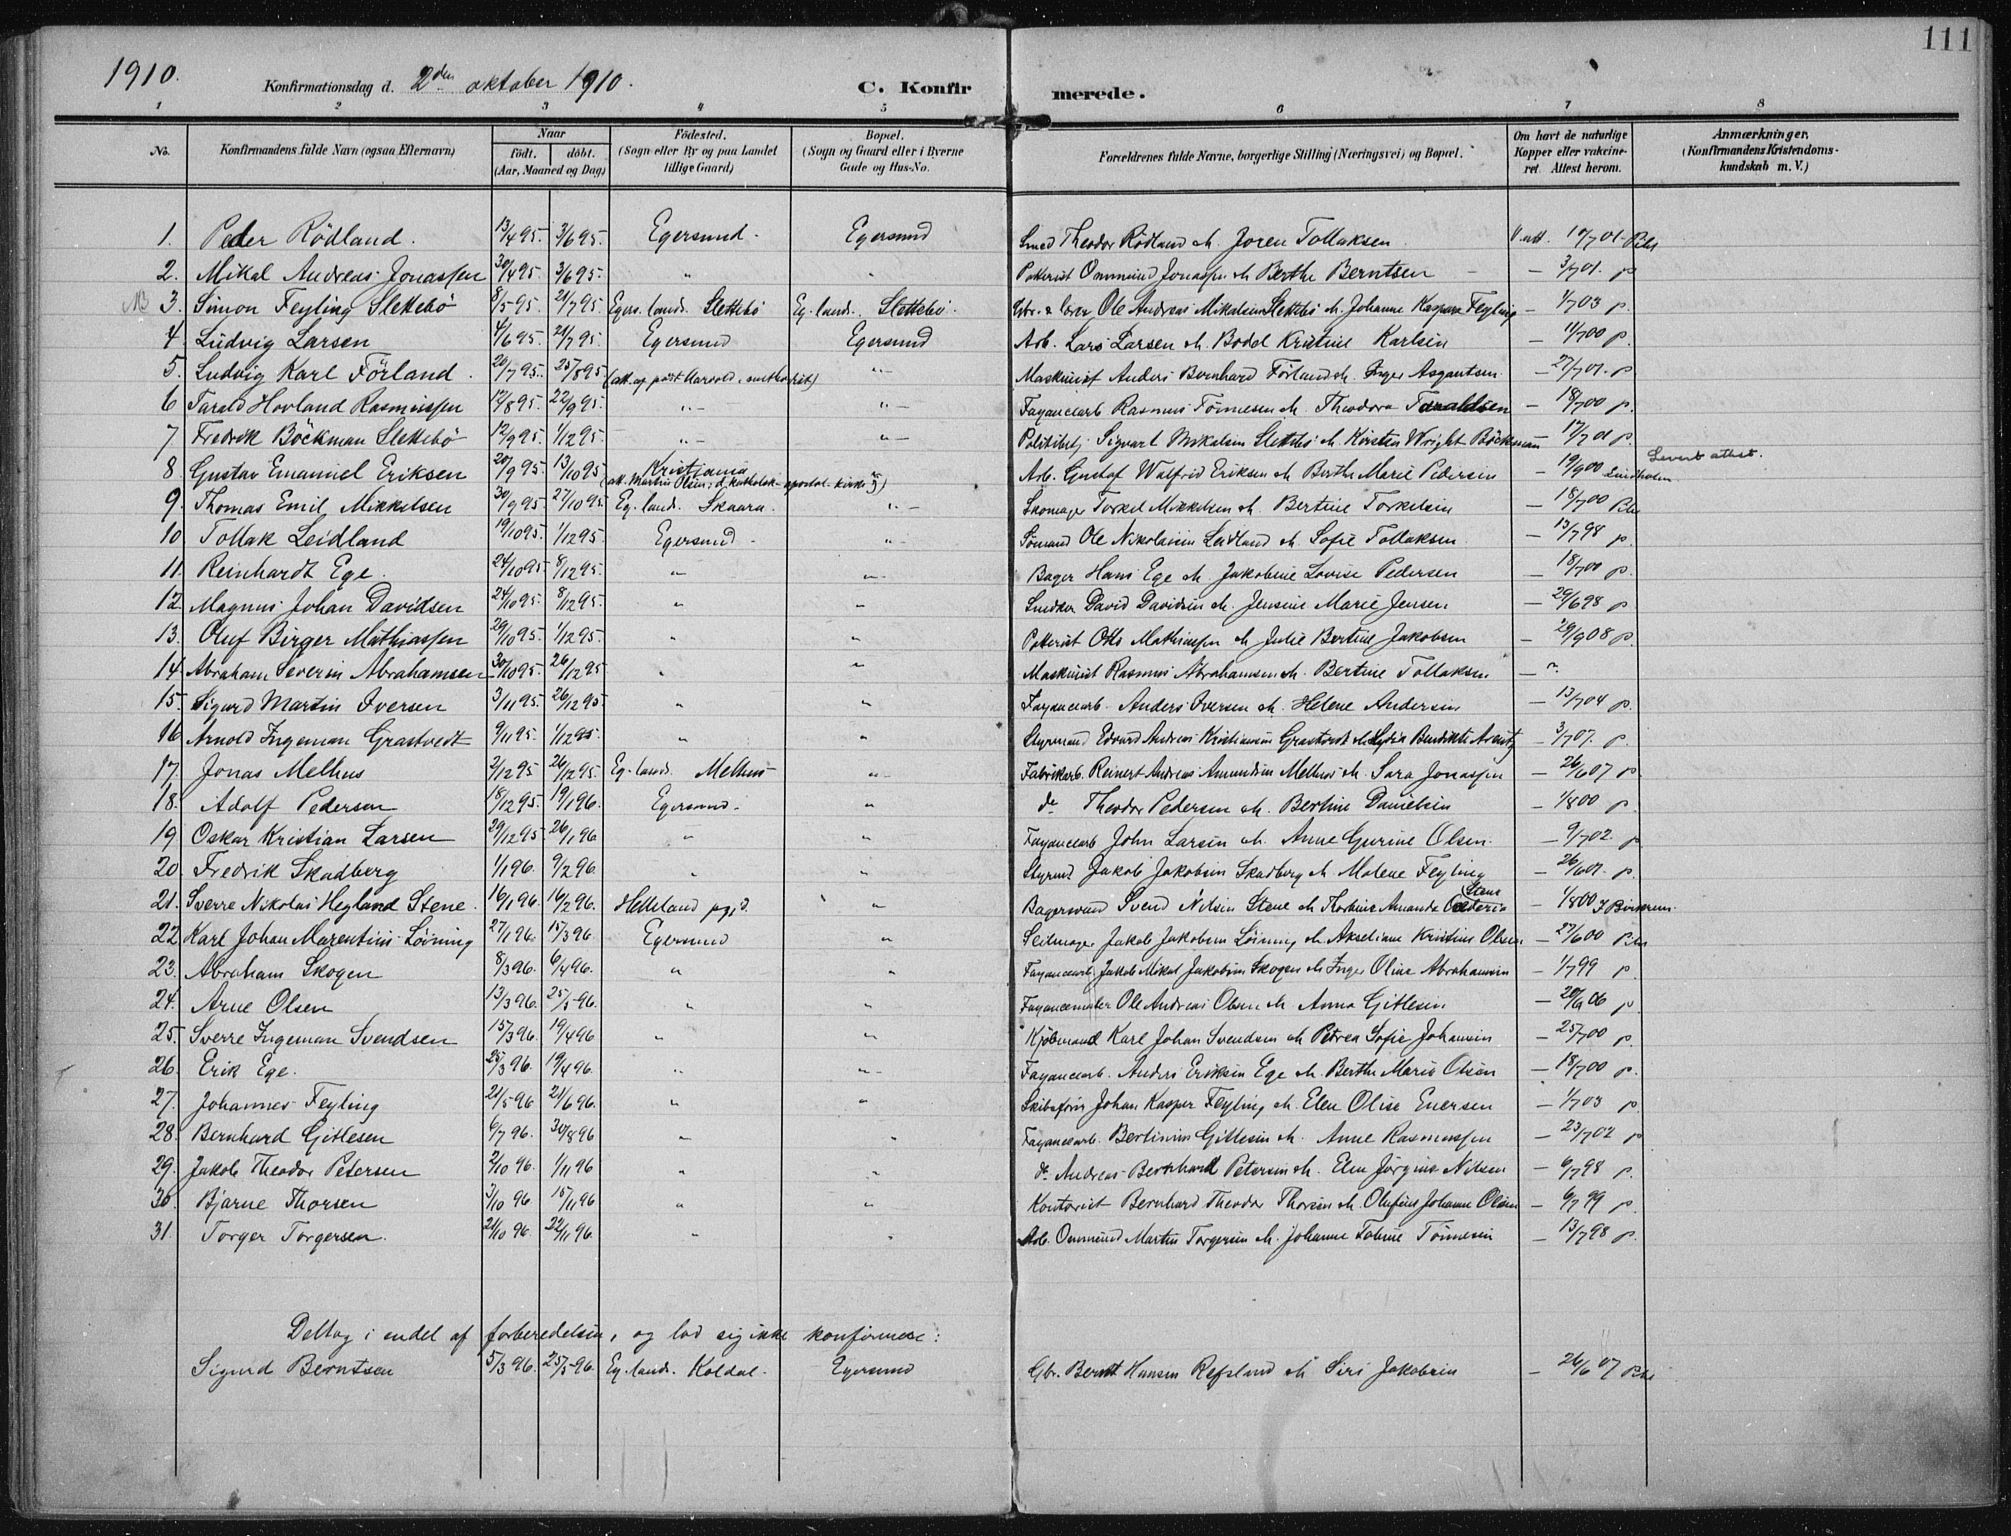 111
1910.
Konfirmationsdag d. 2den oktober 1910.
C. Konfirmerede.
1 2 3 4 5 6 7 8
No. Konfirmandens fulde Navn (ogsaa Efternavn) Naar født. døbt. (Aar, Maaned og Dag) Fødested. (Sogn eller By og paa Landet tillige Gaard) Bopæl. (Sogn og Gaard eller i Byerne Gade og Hus-No. Forældrenes fulde Navne, borgerlige Stilling (Næringsvei) og Bopæl. Om havt de naturlige Kopper eller vakcineret. Attest herom. Anmærkninger. (Konfirmandens Kristendomskundskab m. V.)
1. Peder Rödland. 13/4 95. 3/6 95. Egersund. Egersund Smed Theodor Rödland & Joren Tollaksen V. att. 10/7 01
2. Mikal Andreas Jonassen 30/4 95. 3/6 95. " " Potterist Ommund Jonassen & Berthe Berntsen — 3/7 01. p
NB 3. Simon Feyling Slettebö 8/5 95. 21/7 95. Egers. lands. Slettebö Eg. lands. Slettebö. Ole Andreas Mikalsen Slettebö & Johanne Kaspara Feyling — 1/7 03 p.
4. Ludvig Larsen 4/6 95. 21/7 95. Egersund Egersund Arb. Lars Larsen & Bodel Kristine Karlsen — 11/7 00 p.
5. Ludvig Karl Förland. 20/7 95. 25/8 95. (att. af past. Harvold, methodist) " Maskinist Anders Bernhard Förland & Inger Asgautsen — 27/7 01. p
6 Tarald Hovland Rasmussen 12/8 95. 22/9 95. " " Fayancearb Rasmus Tönnesen & Theodora Taraldsen — 18/7 00 p.
7. Fredrik Böckman Slettebö 12/9 95. 1/12 95. " " Politibetj. Sigvart Mikalsen Slettebö & Kirsten Wright Böckman — 17/7 01 p.
8 Gustav Emanuel Eriksen 20/9 95. 13/10 95 Kristiania (att. Martin Olsen; d. katholsk-apostol. kirke) " Arb. Gustaf Walfrid Eriksen & Berthe Marie Pedersen — 19/9 00 Lindholm Levert attest.
9. Thomas Emil Mikkelsen 30/9 95. 27/10 95. Eg. land. Skaara. " Skomager Torkel Mikkelsen & Bertine Torkelsen — 18/7 00
10. Tollak Leidland 19/10 95. 1/12 95. Egersund " Sömand Ole Nikolaisen Leidland & Sofie Tollaksen — 13/7 98 p.
11. Reinhardt Ege. 24/10 95. 8/12 95. " " Bager Hans Ege & Jakobine Lovise Pedersen — 18/7 00 p.
12. Magnus Johan Davidsen 24/10 95. 8/12 95. " " Snedker David Davidsen & Jensine Marie Jensen — 29/6 98 p
13. Oluf Birger Mathiassen 29/10 95. 1/12 95. " " Potterist Otto Mathiassen & Julie Bertine Jakobsen — 29/9 08 p.
14 Abraham Severin Abrahamsen 30/10 95. 26/12 95 " " Maskinist Rasmus Abrahamsen & Bertine Tollaksen — "
15. Sigurd Martin Iversen 3/11 95. 26/12 95. " " Fayancearb. Anders Iversen & Helene Andersen — 13/7 04 p.
16 Arnold Ingeman Grastvedt 9/11 95. 1/12 95. " " Styrmand Edvard Andreas Kristiansen Grastvedt & Lydia Benedikte Arentz — 3/7 07. p.
17. Jonas Melhus 2/12 95 26/12 95. Eg. lands. Melhus " Fabrikarb. Reinert Andreas Amundsen Melhus & Sara Jonassen — 26/6 07 p.
18. Adolf Pedersen 18/12 95. 19/1 96. Egersund. " do Theodor Pedersen & Bertine Danielsen — 1/8 00 p.
19 Oskar Kristian Larsen 29/12 95. 26/1 96 " " Fayancearb John Larsen & Anne Gurine Olsen. — 9/7 02. p
20. Fredrik Skadberg 1/1 96. 9/2 96. " " Styrmd Jakob Jakobsen Skadberg & Malene Feyling — 26/6 01. p.
21. Sverre Nikolai Hegland Stene. 16/1 96. 16/2 96. Helleland pgjd. " Bagersvend Svend Nilsen Stene & Thorbine Amanda Stene — 1/8 00
22 Karl Johan Marentius Löining 27/1 96. 15/3 96. Egersund " Seilmager Jakob Jakobsen Löining & Akseliane Kristine Olsen — 27/6 00
23. Abraham Skogen 8/3 96. 6/4 96. " " Fayancearb. Jakob Mikal Jakobsen Skogen & Inger Olise Abrahamsen — 1/7 99 p.
24. Arne Olsen 13/3 96. 25/5 96. " " Fayancemaler Ole Andreas Olsen & Anna Gitlesen — 20/9 06 p
25. Sverre Ingeman Svendsen 15/3 96. 19/4 96 " " Kjöbmand Karl Johan Svendsen & Petrea Sofie Johansen — 25/7 00 p.
26. Erik Ege. 25/3 96. 19/4 96. " " Fayancearb. Anders Eriksen Ege & Berthe Marie Olsen — 18/7 00 p.
27. Johannes Feyling 21/5 96 21/6 96. " " Skibsförer Johan Kasper Feyling & Elen Olise Enersen — 1/7 03 p.
28. Bernhard Gitlesen 6/7 96. 30/8 96 " " Fayancearb. Bertinius Gitlesen & Anne Rasmussen — 23/7 02 p
29. Jakob Theodor Petersen 2/10 96. 1/11 96 " " do Andreas Bernhard Petersen & Elen Jörgine Nilsen — 6/7 98 p.
30. Bjarne Thorsen 3/10 96 15/11 96 " " Kontorist Bernhard Theodor Thorsen & Olufine Johanne Olsen — 6/7 99 p.
31. Torger Torgersen. 21/10 96. 22/11 96. " " Arb. Ommund Martin Torgersen & Johanne Tobine Tönnesen — 13/7 98 p.
Deltog i endel af forberedelsen, og lod sig ikke konfirmere:
Sigurd Berntsen 5/3 96. 25/5 96. Eg. lands. Koldal. Egersund Gbr. Bernt Hansen Refsland & Siri Jakobsen — 26/6 07